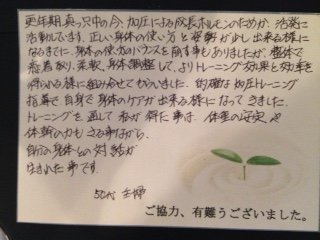 更年期真っ只中の今、加圧による成長ホルモンのためか、活発に
活動しています。正しい身体の使い方と姿勢が少し出来る様に
なるまでに、身体の使い方のバランスを崩す事もありましたが、整体で
癒着取り、柔軟、身体調整して、よりトレーニング効果と効率を
得られる様に組み合せてもらいました。的確な加圧トレーニング
指導で自身で身体のケアが出来る様になってきました。
トレーニングを通して私が得た事は、体重の安定や
体幹の力もさる事ながら、
自分の身体との対話が
生まれた事です。
50代 主婦
ご協力、有難うございました。